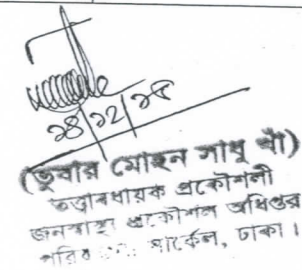 ২৪/১২/২৪
(তুষার মোহন সাধু খাঁ)
তত্ত্বাবধায়ক প্রকৌশলী
জনস্বাস্থ্য প্রকৌশল অধিদপ্তর
সার্কেল, ঢাকা।